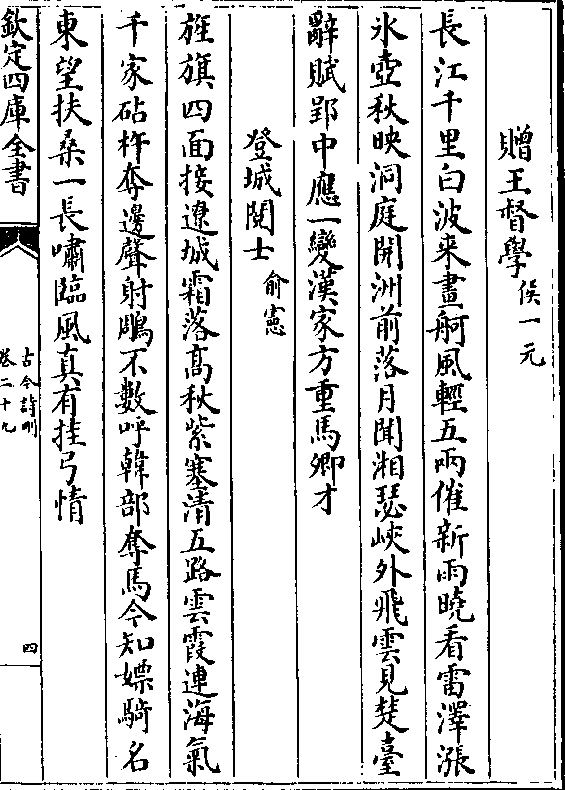 贈王督學侯一元
長江千里白波来畫舸風輕五兩催新雨曉看雷澤漲
氷壺秋映洞庭開洲前落月聞湘瑟峽外飛雲見楚臺
辭賦郢中應一變漢家方重馬卿才
登城閱士俞憲
旌旗四面接遼城霜落高秋紫塞清五路雲霞連海氣
千家砧杵奪邊聲射鵰不數呼韓部奪馬今知嫖騎名
東望扶桑一長嘯臨風真有挂弓情
欽定四庫全書
古今詩刪
卷二十九
四